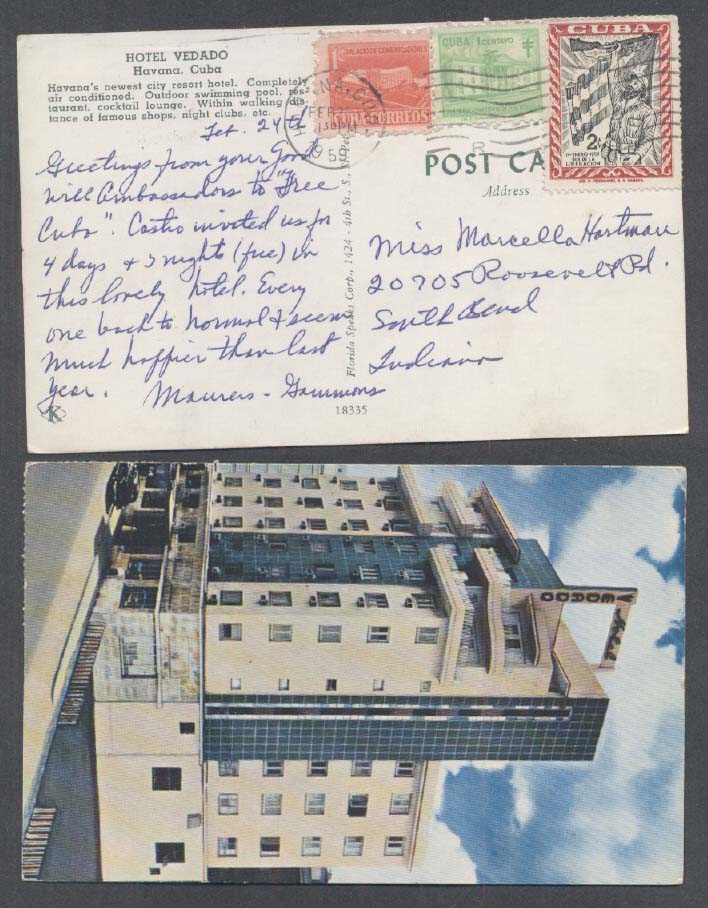 HOTEL VEDADO
Havana, Cuba
Havana's newest city resort hotel. Completely
air conditioned. Outdoor swimming pool, res-
taurant, cocktail lounge. Within walking dis-
tance of famous shops, night clubs, etc.
Feb. 24th
Greetings from your Good
Will Ambassadors to "Free
Cuba". Castro invited us for
4 days & 3 nights (free) in
this lovely hotel. Every
one back to normal & seem
much happier than last
year. Maurers - Gammons
K
Florida Speaks Corp., 1424 - 4th St., S., St. Pet
18335
PALACIO DE COMUNICACIONES
1c
CUBA CORREOS
CUBA 1 CENTAVO
CUBA
2c
1o ENERO 1959
DIA DE LA
LIBERACION
HAVANA, CU
FEB
130 PM
1959
POST CA
Address
Miss Marcella Hartman
20705 Roosevelt Rd.
South Bend
Indiana
Hotel
VEDADO